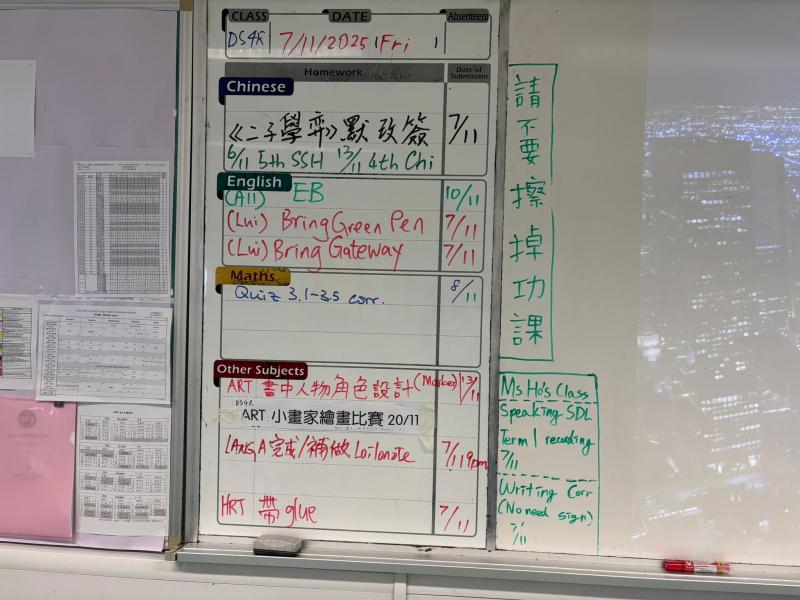 CLASS DATE Absentee(s)
DS4R 7/11/2025 (Fri )
Homework Date of Submission
Chinese
《二子學弈》默改簽 7/11
6/11 5th SSH 13/11 4th Chi
English
(All) EB 10/11
(Lui) Bring Green Pen 7/11
(Lui) Bring Gateway 7/11
Maths
Quiz 3.1-3.5 corr. 8/11
Other Subjects
ART 書中人物角色設計 (Marker) 13/11
DS4R
ART 小畫家繪畫比賽 20/11
LANG A 完成/補做 Loilonote 7/11 9pm
HRT 帶 glue 7/11
請不要擦掉功課
Ms Ho's Class
Speaking SDL
Term 1 recording
7/11
Writing Corr
(No need sign)
7/11